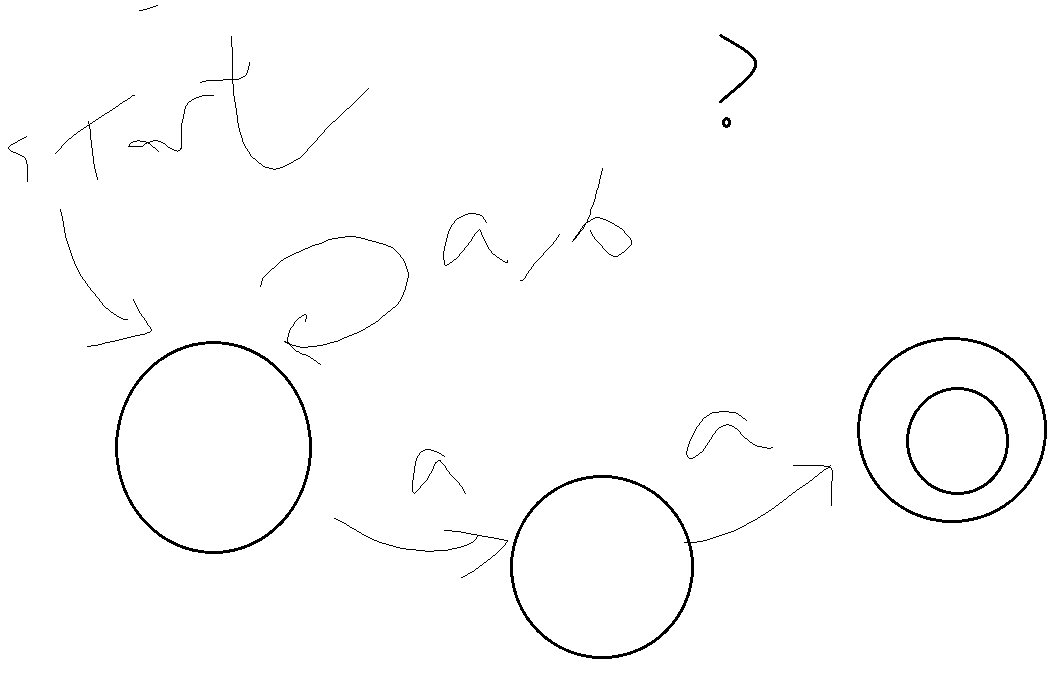 start
?
a,b
a
a